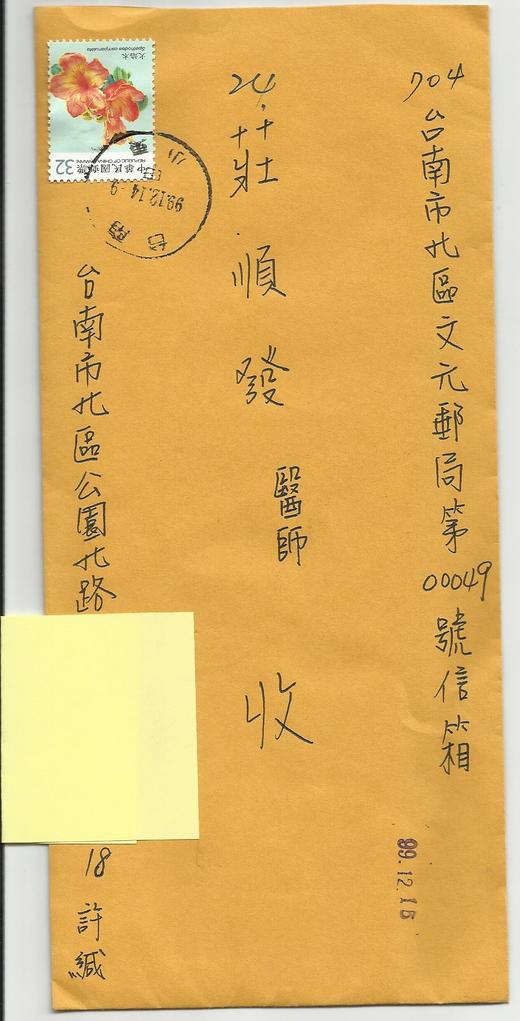 704台南市北區文元郵局第00049號信箱
24.莊順發醫師 收
台南市北區公園北路
18 許緘
99.12.15
火焰木
Spathodea campanulata
32
中華民國郵票
REPUBLIC OF CHINA (TAIWAN)
台南
99.12.14-9